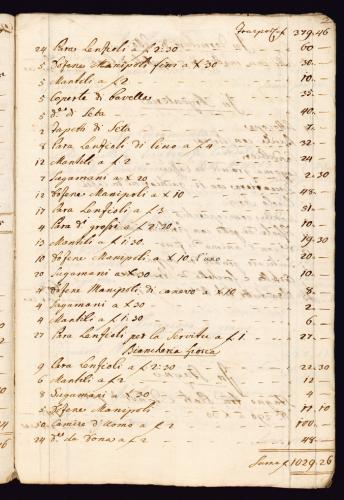 Trasporto f 379.46
24 Para Lenzioli a f 2:30 60.—
5 Dozene Manipoli fini a x 30 30.—
5 Mantili a f 2 10.—
5 Coperte di Bavella 35.—
5 d.e di Seta 40.—
2 Tapeti di Seta 7.—
8 Para Lenzioli di lino a f 4 32.—
12 Mantili a f 2 24
7 Sugamani a x 20 2.30
12 Dozene Manipoli a x 10 48.—
17 Para Lenzioli a f 3 51.—
4 Para d.i grossi a f 2:30 10.—
13 Mantili a f 1:30 19.30
10 Dozene Manipoli a x 10 20.—
20 Sugamani a x 30 10.—
4 Dozene Manipoli di canevo a x 10 8.—
4 Sugamani a x 30 2.—
4 Mantili a f 1:30 6.—
27 Para Lenzioli per la Servitù a f 1 27.—
Biancheria
9 Para Lenzioli a f 2:30 22.30
6 Mantili a f 2 12
8 Sugamani a x 30 4
5 Dozene Manipoli
50 Camise d'Uomo a f 2 100.—
24 d.e da Dona a f 2 48.—
Suma f 1029.26